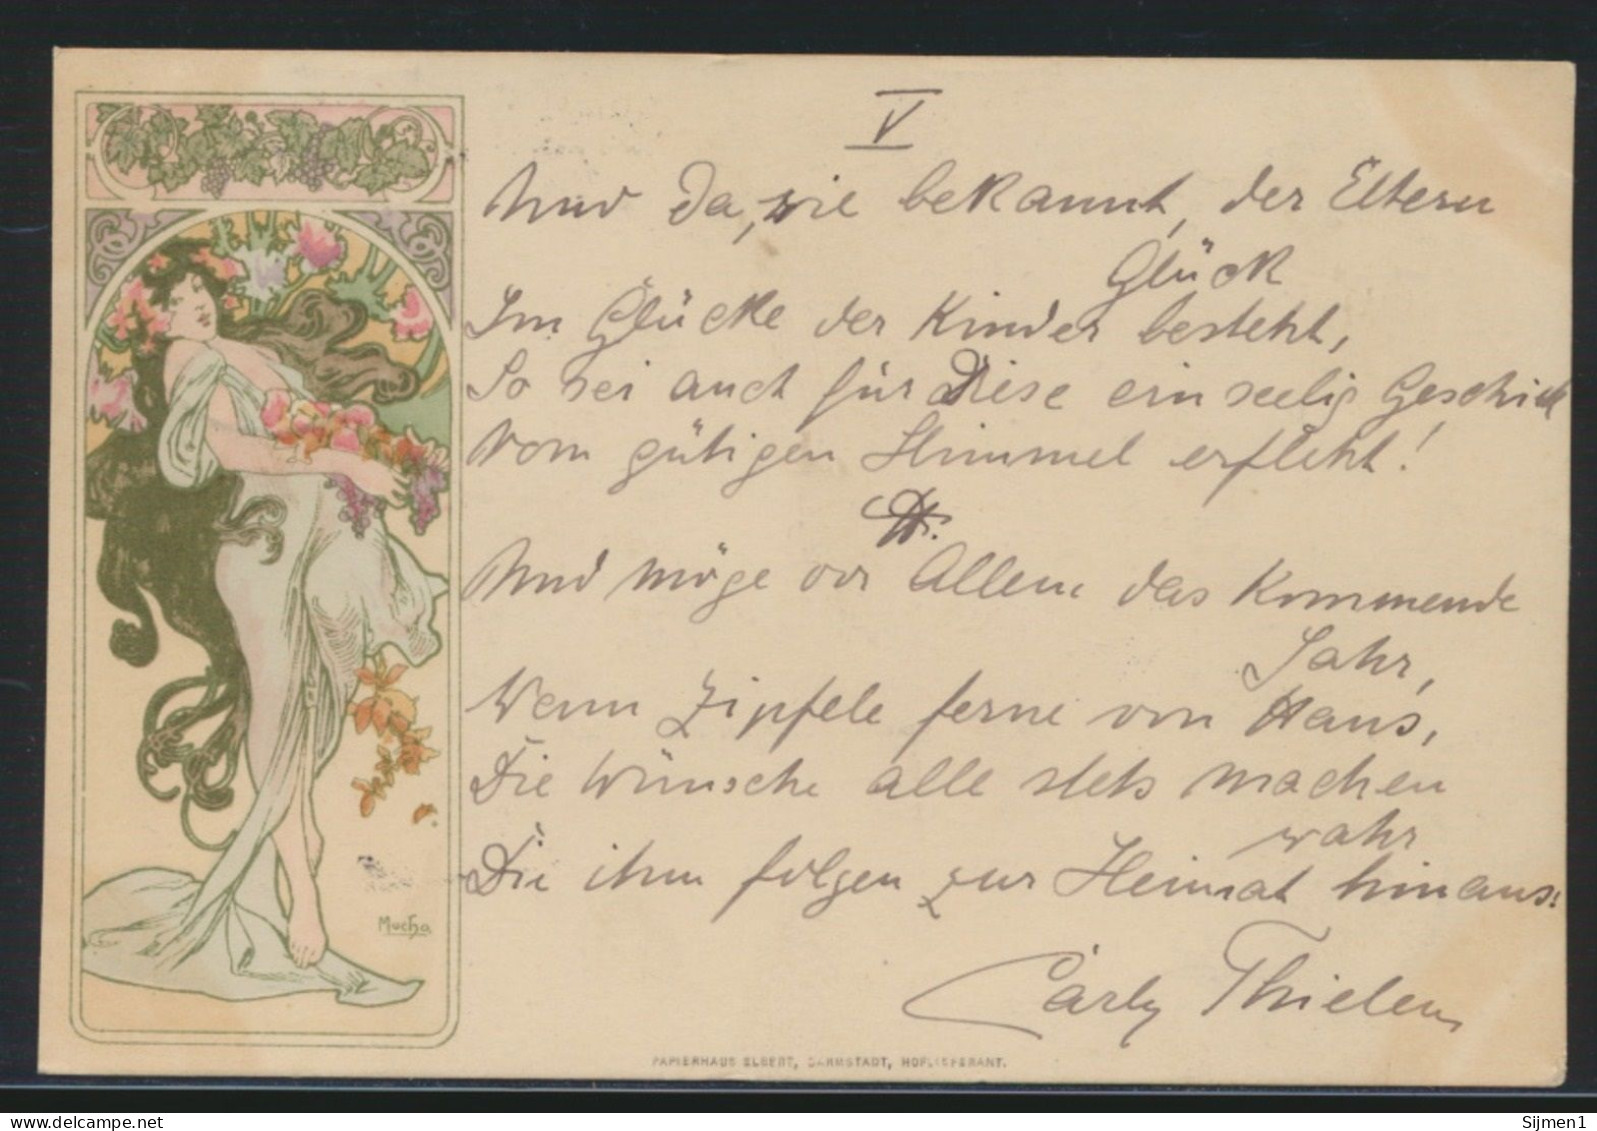 V
Und da, wie bekannt, der Eltern
Glück
Im Glücke der Kinder besteht,
So sei auch für Diese ein seelig Geschick
Vom gütigen Himmel erfleht!
Und möge vor Allem das Kommende
Jahr,
Wenn Zipfele ferne von Haus,
Die Wünsche alle stets machen
wahr
Die ihm folgen zur Heimat hinaus!
Carly Thielen
Mucha
PAPIERHAUS ELBERT, DARMSTADT, HOFLIEFERANT.
Sijmen1